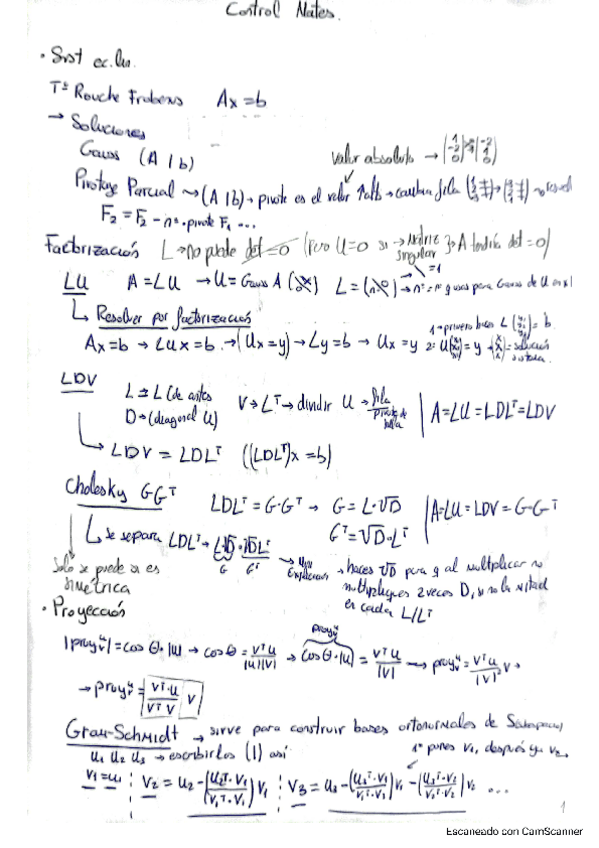 Control Mates.
• Sist ec. lin.
Tª Rouche Frobenius Ax = b
→ Soluciones
Gauss (A | b)
valor absoluto →
Pivotaje Parcial → (A | b) → pivote es el valor
F₂ = F₂ - nº·pivote F₁ ...
Factorización L → no puede det = 0 (Pero U = 0 si → Matriz singular } → A tendría det = 0)
LU A = LU → U = Gauss A L = → nº = nº q usas para Gauss de U
↳ Resolver por factorización
1 → primero haces L = b
Ax = b → LUx = b → (Ux = y) → Ly = b → Ux = y 2: U = y → = solución sistema
LDV L = L (de antes
D → (diagonal U)
V → Lᵀ → dividir U → fila
A = LU = LDLᵀ = LDV
↳ LDV = LDLᵀ ((LDLᵀ)x = b)
Cholesky GGᵀ LDLᵀ = G·Gᵀ → G = L·√D
Gᵀ = √D·Lᵀ
A = LU = LDV = G·Gᵀ
↳ se separa LDLᵀ → L√D · √DLᵀ
G Gᵀ
→ haces √D para q al multiplicar no
multipliques 2 veces D, si no la mitad
en cada L/Lᵀ
Solo se puede si es
simétrica
• Proyección
|proyᵥᵘ| = cos θ · |u| → cos θ = vᵀu / |u||v| → cos θ · |u| = vᵀu / |v| → proyᵥᵘ = vᵀu / |v|² v →
→ proyᵥᵘ = vᵀ·u / vᵀv v
Gram-Schmidt → sirve para construir bases ortonormales de Subespacios
u₁ u₂ u₃ → escribirlos (1) así
1º pones v₁, después ya v₂
v₁ = u₁ ; v₂ = u₂ - (u₂ᵀ·v₁ / v₁ᵀ·v₁) v₁ ; v₃ = u₃ - (u₃ᵀ·v₁ / v₁ᵀ·v₁) v₁ - (u₃ᵀ·v₂ / v₂ᵀ·v₂) v₂ ...
1
Escaneado con CamScanner